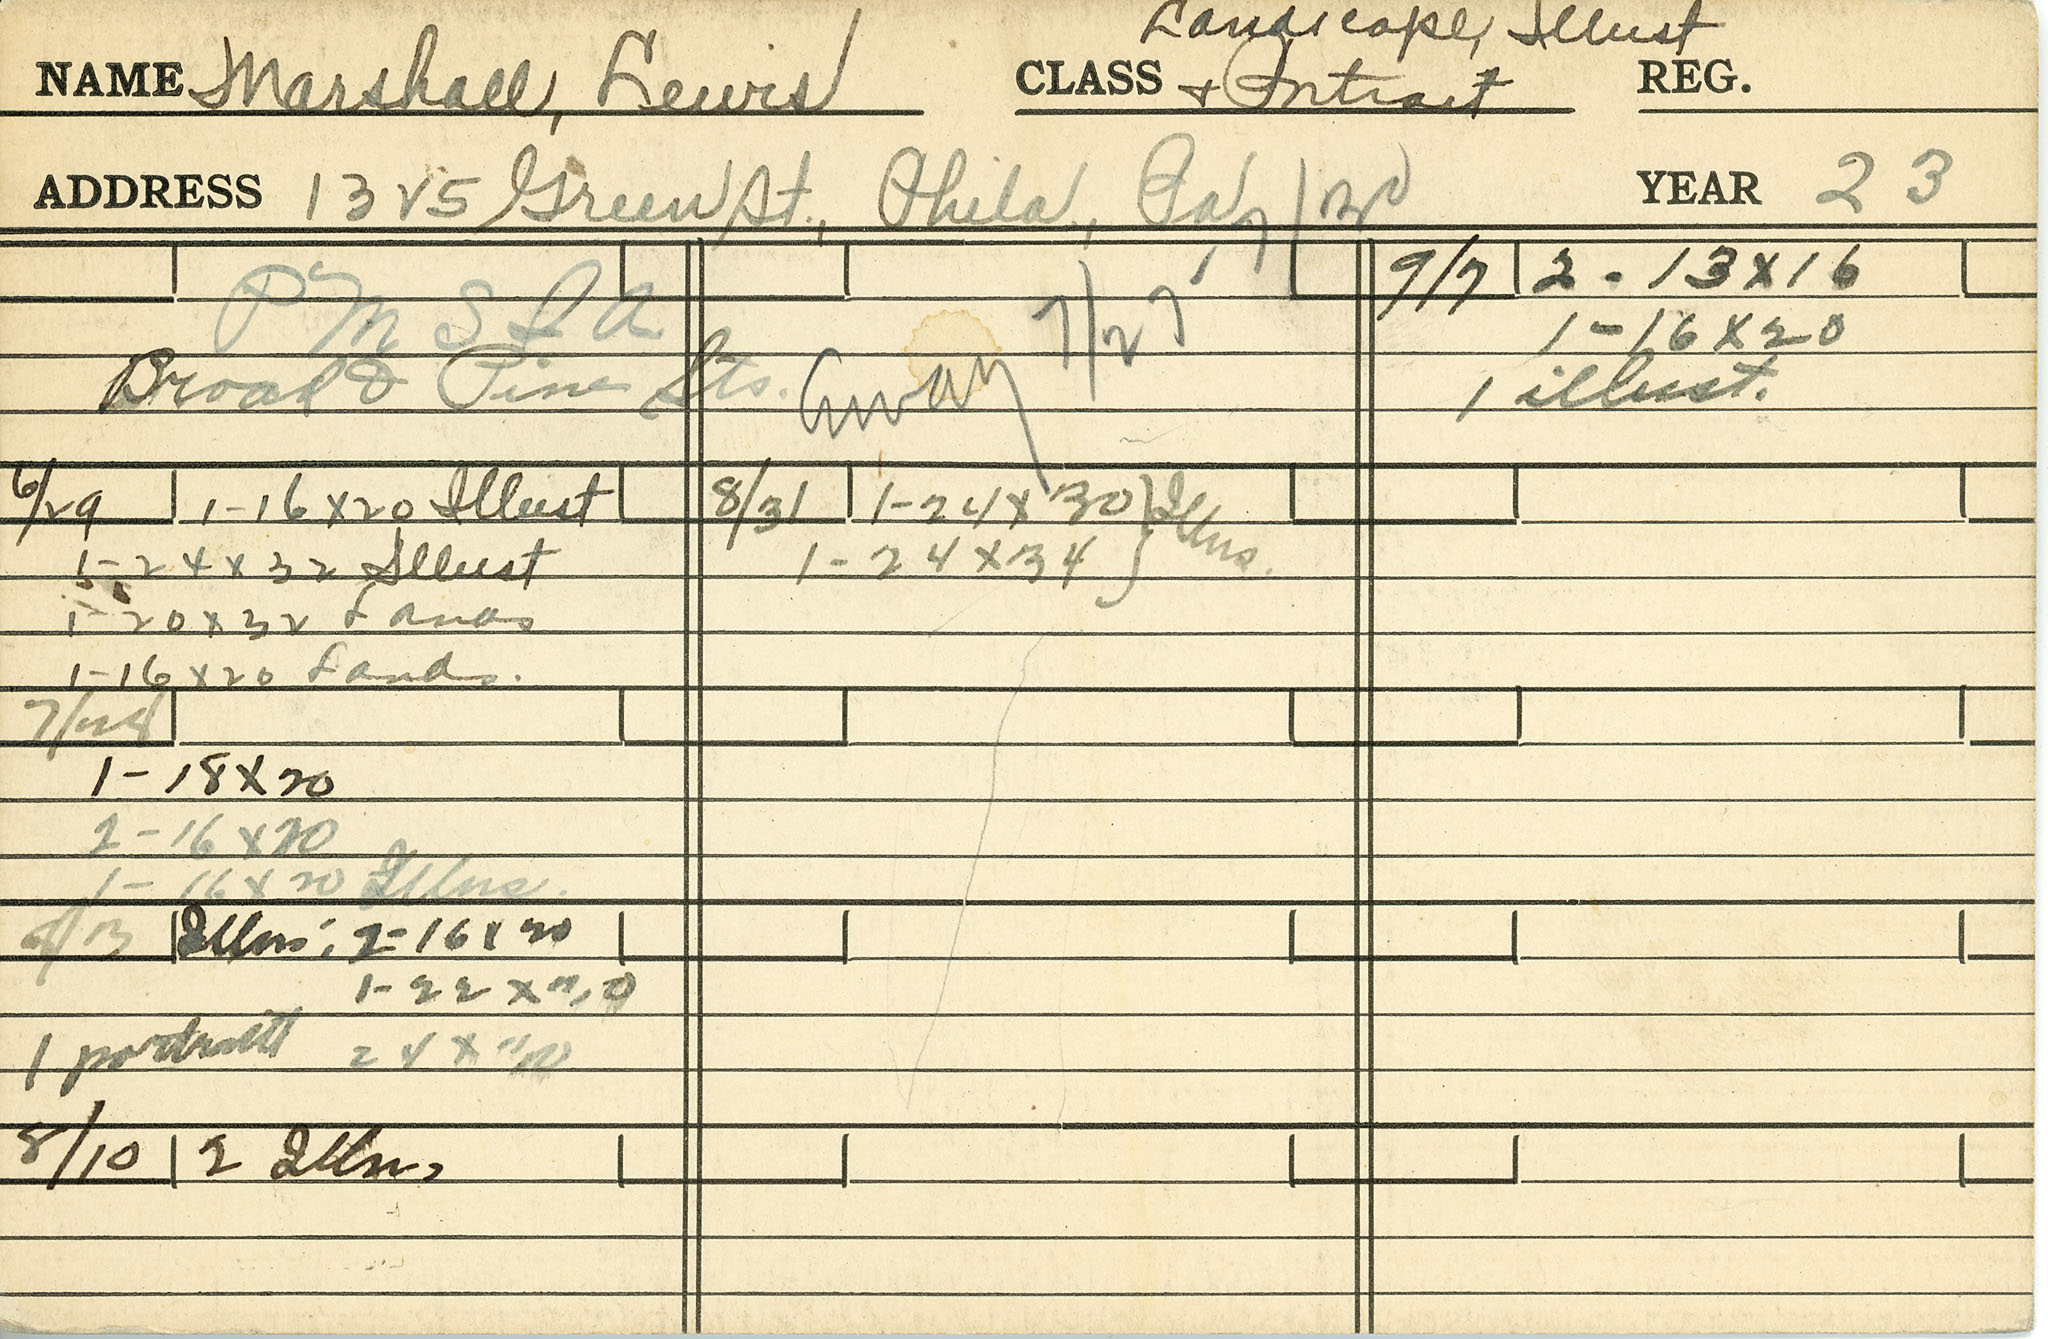 Landscape, Illust
NAME Marshall, Lewis CLASS + Portrait REG.
ADDRESS 1325 Green St., Phila, Pa, 7/30 YEAR 23
P M S I A
Broad & Pine Sts.
Away 7/27
9/7 2 - 13x16
1-16x20
1 illust.
6/29 1-16x20 Illust
1-24x32 Illust
1-20x32 Lands
1-16x20 Lands.
7/28
1-18x20
2-16x20
1-16x20 Illus.
Illus; 2-16x20
1-22x
1 portrait 24x
8/10 2 Illus
8/31 1-24x30 } Illus.
1-24x34